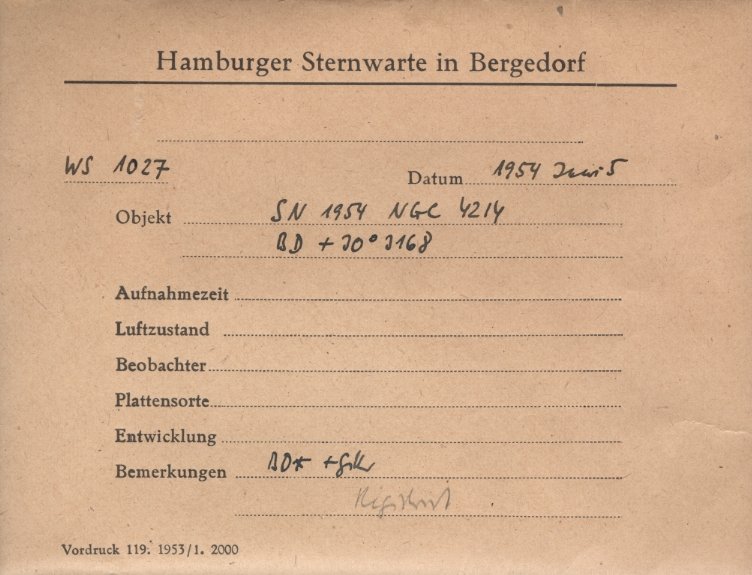 Hamburger Sternwarte in Bergedorf
WS 1027
Datum 1954 Juni 5
Objekt SN 1954 NGC 4214
BD +30° 3168
Aufnahmezeit
Luftzustand
Beobachter
Plattensorte
Entwicklung
Bemerkungen BD*
Registriert
Vordruck 119. 1953/1. 2000